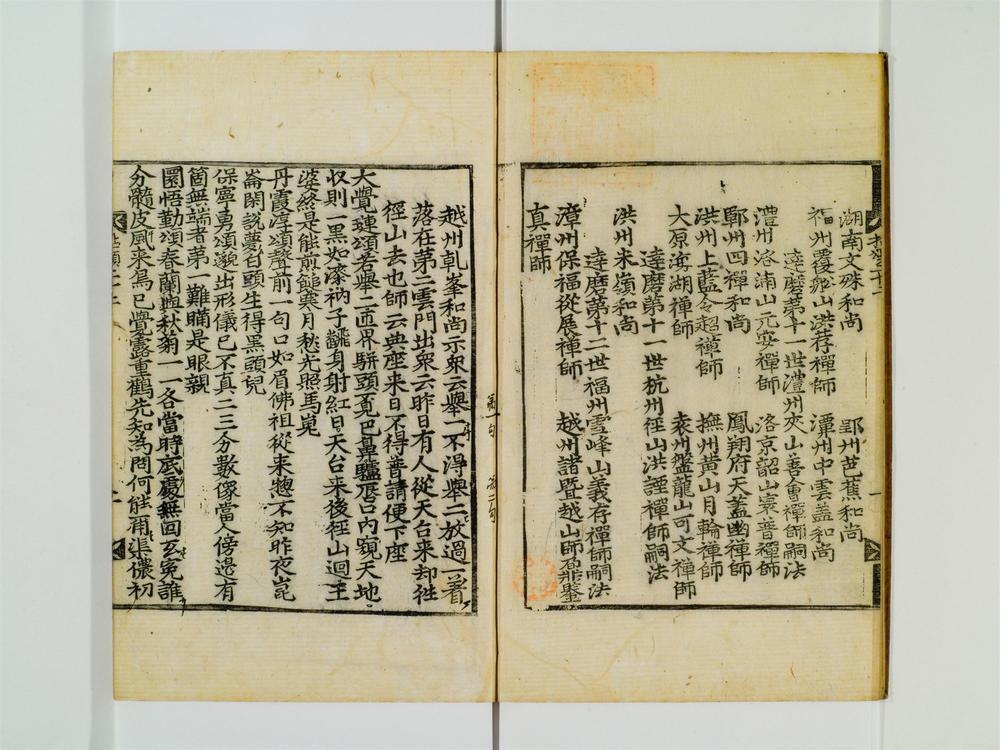 湖南文殊和尚 郢州芭蕉和尚
福州覆船山洪荐禪師 潭州中雲蓋和尚
達磨第十一世澧州夾山善會禪師嗣法
澧州洛浦山元安禪師 洛京韶山寰普禪師
鄆州四禪和尚 鳳翔府天蓋幽禪師
洪州上藍令超禪師 撫州黃山月輪禪師
大原海湖禪師 袁州盤龍山可文禪師
達磨第十一世杭州徑山洪諲禪師嗣法
洪州米嶺和尚
達磨第十二世福州雪峰山義存禪師嗣法
漳州保福從展禪師 越州諸暨越山師鼐鑒
真禪師
越州乾峯和尚示衆云舉一不得舉二放過一着
落在第二雲門出衆云昨日有人從天台來却徃
徑山去也師云典座來日不得普請便下座
大覺璉頌若舉二匝界駢頭覓巴鼻驢唇口內窺天地
収則一黑如漆衲子飜身射紅日天台来後徑山迴王
婆終是能煎䭔寒月愁光照馬嵬
丹霞淳頌聲前一句口如眉佛祖從来惣不知昨夜崑
崙閑說夢白頭生得黑頭兒
保寧勇頌邈出形儀已不真二三分數像當人傍邊有
箇無端者第一難瞞是眼親
圜悟勤頌春蘭與秋菊一一各當時底處無回互寃誰
分髓皮風来鳥已覺露重鶴先知為問何能爾渠儂初